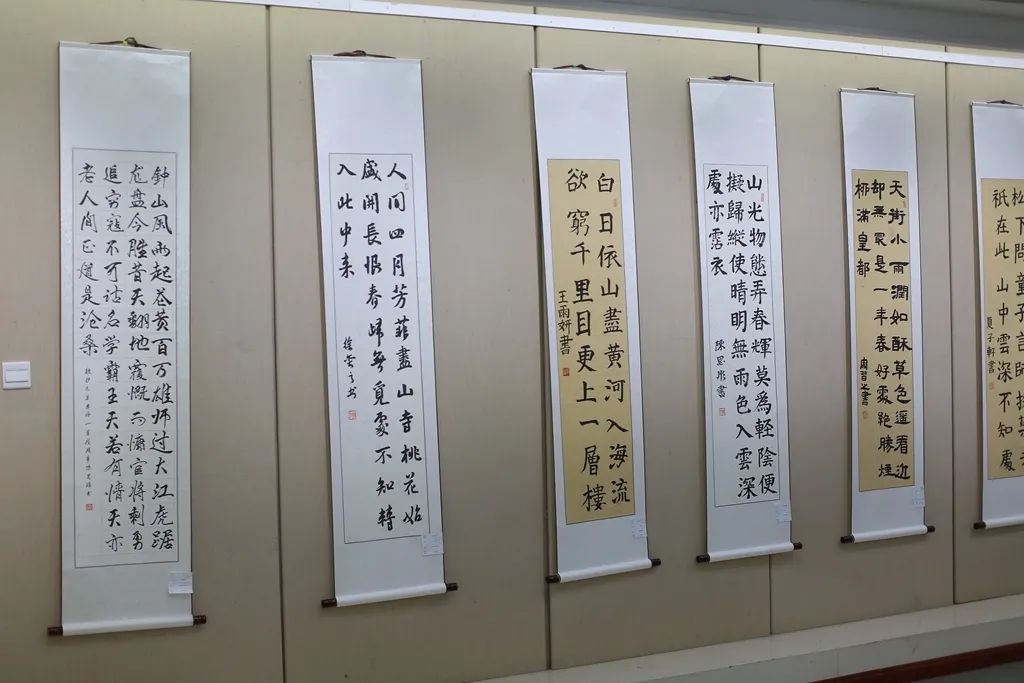 钟山风雨起苍黄百万雄师过大江虎踞
龙盘今胜昔天翻地覆慨而慷宜将剩勇
追穷寇不可沽名学霸王天若有情天亦
老人间正道是沧桑
人间四月芳菲盡山寺桃花始
盛開長恨春歸無覓處不知轉
入此中来
白日依山盡黄河入海流
欲窮千里目更上一層樓
王雨妍書
山光物態弄春輝莫為輕陰便
擬歸縱使晴明無雨色入雲深
處亦霑衣
陳思彤書
天街小雨潤如酥草色遥看近
却無最是一年春好處絶勝煙
柳滿皇都
松下問童子言師採
祇在此山中雲深不知處
夏子軒書